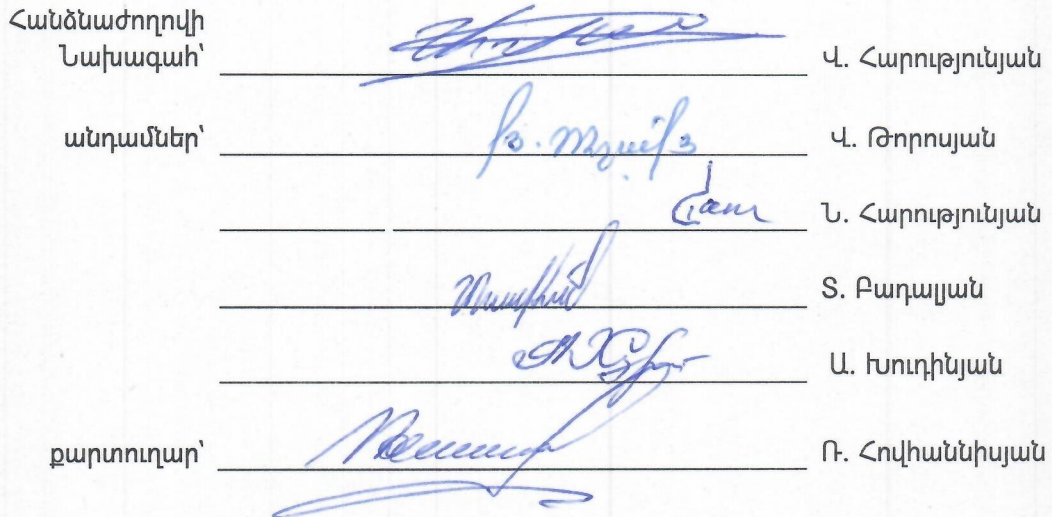 Հանձնաժողովի
Նախագահ՝ Վ. Հարությունյան
անդամներ՝ Վ. Թորոսյան
Ն. Հարությունյան
Տ. Բադալյան
Ա. Խուդինյան
քարտուղար՝ Ռ. Հովհաննիսյան